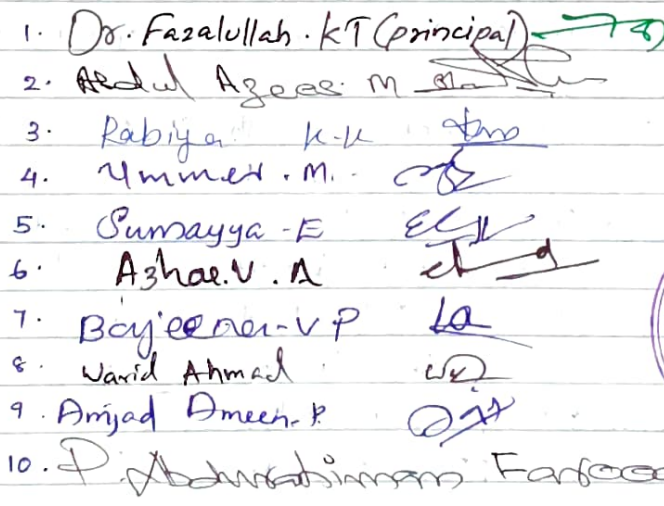 1. Dr. Fazalullah. KT (principal)
2. Abdul Azees M
3. Rabiya K-K
4. Ummer. M.
5. Sumayya - E
6. Azhar.V.A
7. V P
8. Warid Ahmad
9. Amjad Ameen. P.
10. P. Abdurahiman Farooq